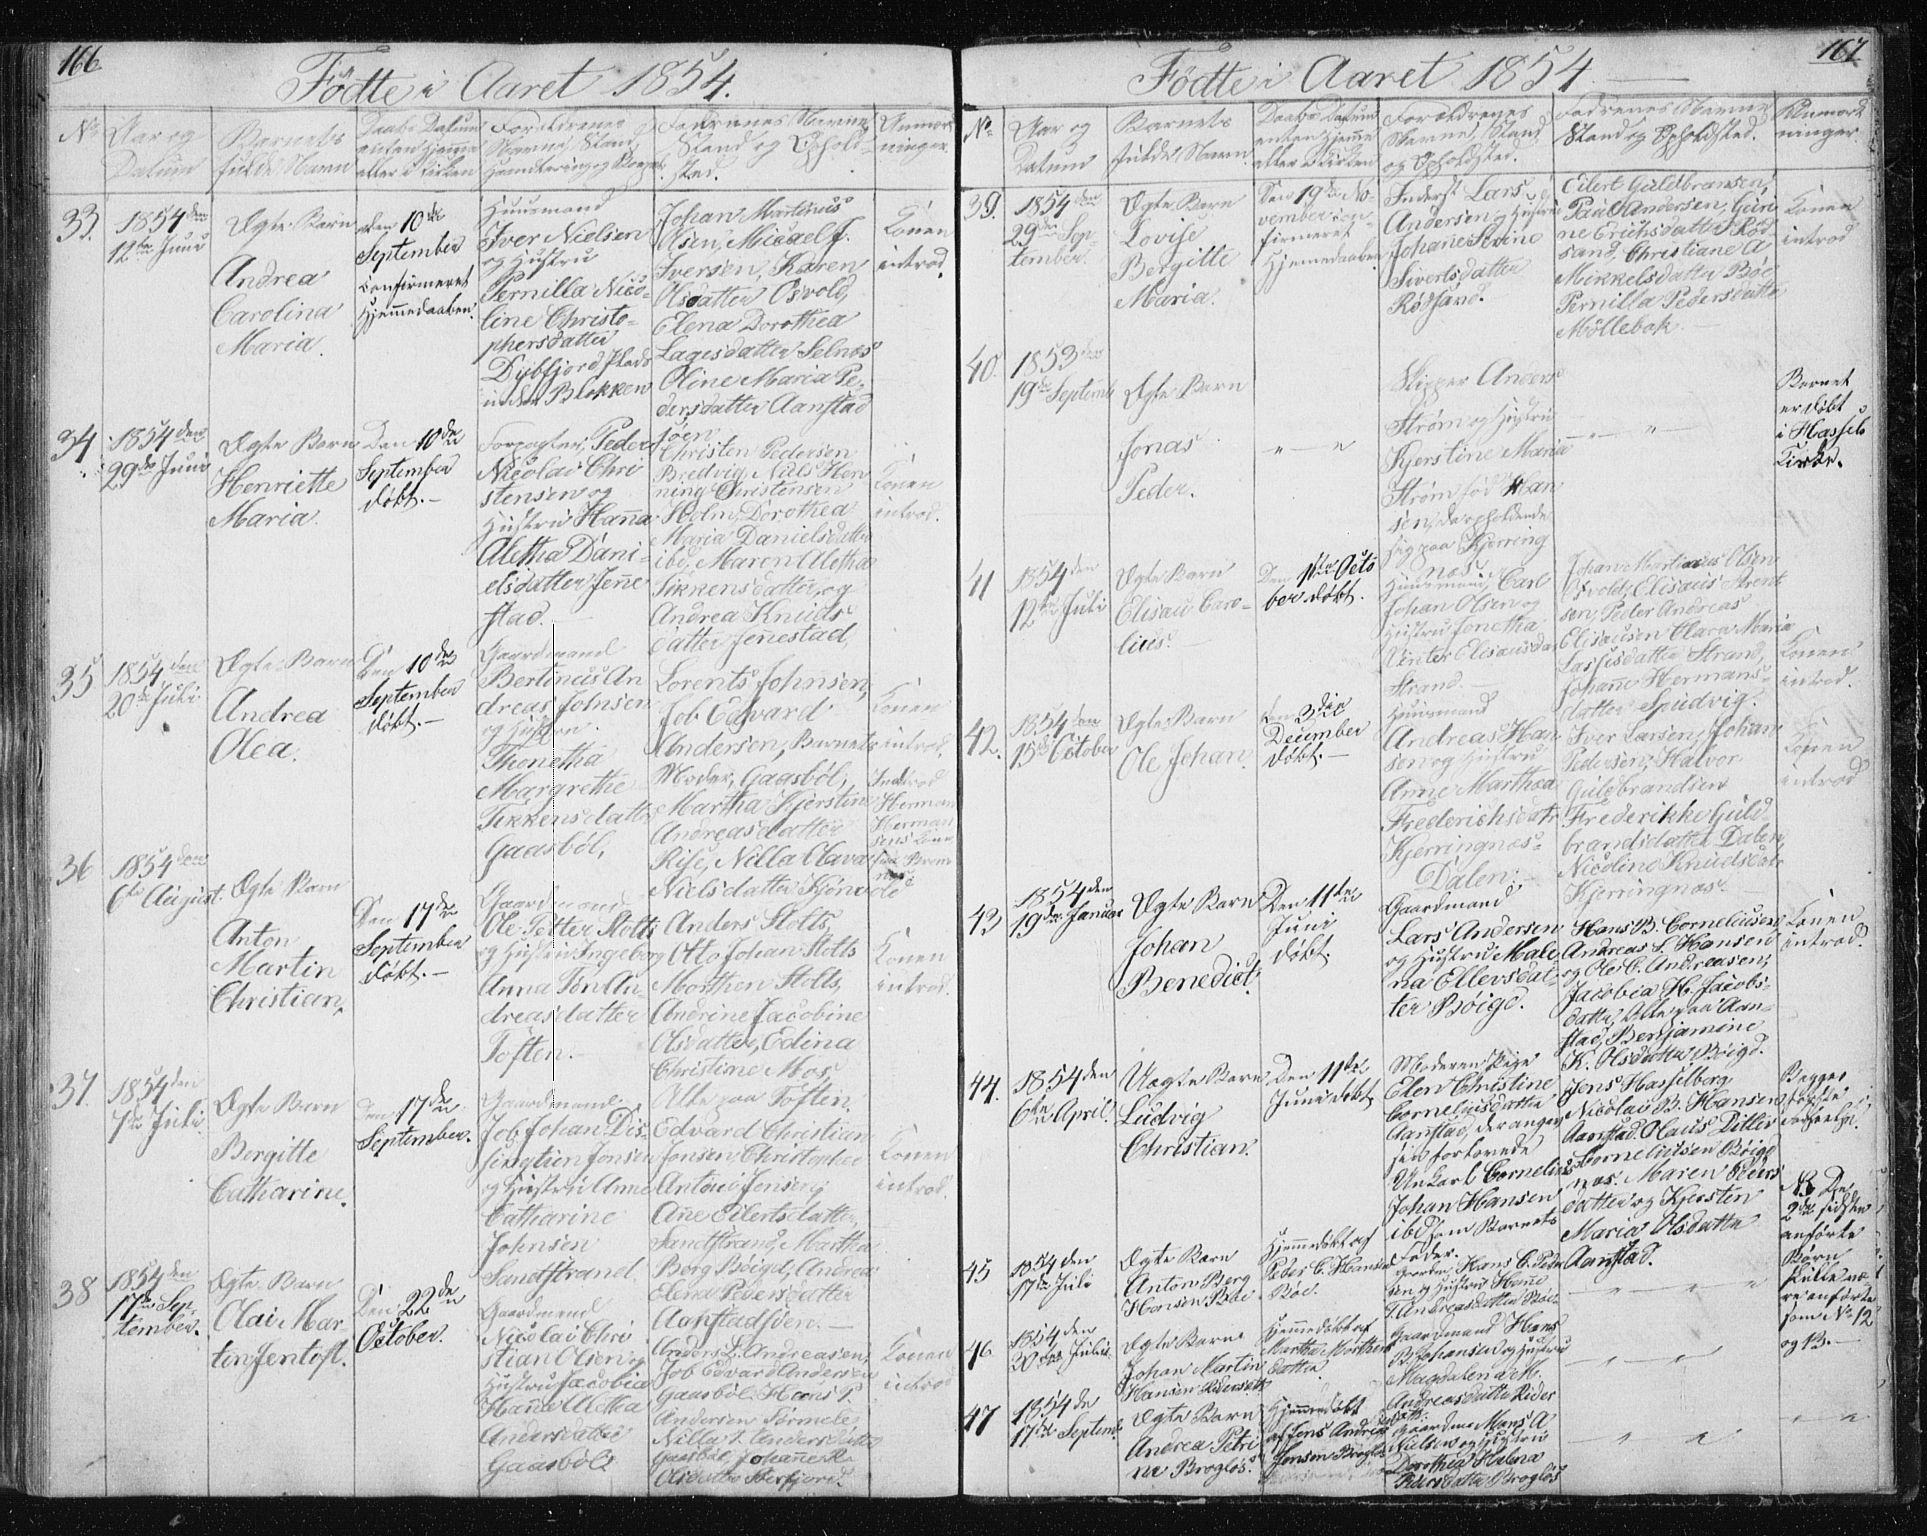 166
Födte i Aaret 1854.
No
Aar og
Datum
Barnets
fulde Navn
Daabs Datum
enten Hjemme
eller i Kirken
Forældrenes
Navne, Stand
Haandtering og
Faddrenes Navne
Stand og Ophold-
sted.
Anmærk
ninger.
33.
1854 den
12te Juni
Ægte Barn
Andrea
Carolina
Maria.
den 10de
September
Confirmeret
Hjemmedaaben.
Huusmand
Iver Nielsen
og Hustru
Pernilla Nico-
line Christo-
phersdatter
Dybfjord Plads
under Blokken
Johan Martinus
Olsen, Michael J.
Iversen, Karen
Olsdatter Osvold,
Elena Dorothea
Lagesdatter Selnæs
Oline Maria Pe-
dersdatter Aanstad
söen
Konen
introd.
34
1854 den
29de Juni
Ægte Barn
Henriette
Maria.
Den 10de
September
döbt.-
Forpagter, Peder
Nicolai Chri
stensen og
Hustru Hanna
Aletha Dani-
elsdatter Jenne
stad.
Christen Pedersen
Bredvig, Niels Hen
ning Christensen
Holm, Dorothea
Maria Danielsdatter
ibd, Maren Aletha
Tikkensdatter, og
Andrea Knuds
datter Jennestad,
Konen
introd.
35
1854 den
20de Juli
Ægte Barn
Andrea
Olea.
Den 10de
September
döbt.-
Gaardmand
Bertinus An
dreas Johnsen
og Hustru.
Thonetha
Margrethe
Tikkensdatter
Gaasböl,
Lorents Johnsen,
Job Edvard
Andersen, Barnets
Moder, Gaasböl,
Martha Kjerstine
Andreasdatter
Rise, Nilla Olava
Nielsdatter
Konen
introd,
Introd
Herman
Herman
sens Kone
36
1854 den
6te August.
Ægte Barn
Anton
Martin
Christian,
Den 17de
September
döbt.-
Gaardmand
Ole Petter Stolts
og Hustru Ingeborg
Anna An-
dreasdatter
Toften.
Anders Stolts,
Otto Johan Stolts
Morthen Stolts,
Andrine Jacobine
Olsdatter, Edina
Christine Moe,
Alle paa Toften.
Konen
introd.
37.
1854 den
7de Juli
Ægte Barn
Bergitte
Catharine.
den 17de
September.
Gaardmand
Job Johan Dis-
Jensen
og Hustru Anne
Catharine
Johnsen
Sandstrand.
Edvard Christian
Jensen Christopher
Antoni Jensen,
Ane Eilertsdatter,
Sandstrand, Martha
Berg Böigd, Andrea
Elena Pedersdatter
Aanstadsöen.
Konen
introd.
38
1854 den
17de Sep-
tember.
Ægte Barn
Olai Mar
ten Jentoft.
Den 22de
October.
Gaardmand
Nicolai Chri
stian Olsen og
Hustru Jacobia
Maria Aletha
Andersdatter
Gaasböl
Anders L. Andreasen,
Job Edvard Andersen
Gaasböl, Hans P.
Andersen
Nilla Andersdatter
Gaasböl, Johanne
Olsdatter
Konen
introd
167
Födte i Aaret 1854
No
Aar og
Datum
Barnets
fulde Navn
Daabs Datum
enten Hjemme
eller i Kirken
Forældrenes
Navne, Stand
og Opholdsted.
Fadrenes Navne
Stand og Opholdsted.
Anmærk
ninger.
39.
1854 den
29de Sep-
tember
Ægte Barn
Lovise
Bergitte
Maria.
Den 19de No-
vember con-
firmeret
Hjemmedaaben
Inderst Lars
Andersen og Hustru
Johane Sevine
Sivertsdatter
Rödsand.
Eilert Guldbransen,
Paul Andersen, Guri-
ne Erichsdatter Röd
sand, Christiane A
Mikkelsdatter Böe
Pernilla Pedersdatter
Möllebak.
Konen
introd
40.
1853 den
19de Septemb
Ægte Barn
Jonas
Peder.
" — "
Skipper Anders
Ström og Hustru
Kjerstine Maria
Ström föd Han
sen, der opholdende
sig paa Kjerring
næs
" — "
Barnet
er döbt
i Hassels
Kirke.
41
1854 den
12te Juli
Ægte Barn
Elisau Caro-
lius.
Den 1ste Octo
ber döbt.
Huusmand, Carl
Johan Olsen og
Hustru Jonetha
Vinter Elisausdat
Strand.
Johan Martinus Olsen
Osvold, Elisaus Arent
sen, Peder Andreas
Elisausen Clara Maria
Sassisdatter Strand,
Johanne Hermans-
datter Spudvig.
Konen
introd.
42.
1854 den
15de October
Ægte Barn
Ole Johan.
den 3die
December
döbt.-
Huusmand
Andreas Han
sen og Hustru
Anne Marthea
Frederichsdatr
Kjerringnæs-
Dalen.-
Iver Larsen, Johan
Pedersen, Halvor
Guldbrandsen
Frederikke Guld-
brandsdatter Dalen,
Nicoline Knudsdatr
Kjerringnæs
Konen
introd
43
1854 den
19de Januar
Ægte Barn
Johan
Benedict.
Den 11te
Juni
döbt.
Gaardmand
Lars Andersen
og Hustru Male-
na Ellevsdat-
ter Böigd.
Hans B. Corneliusen
Andreas L. Hansen
og Ole C. Andreasen,
Jacobia H. Jacobs-
datter, Alle paa Aan-
stad, Benjamine
K. Olsdatter Böigd.
Konen
introd.
44.
1854 den
6te April.
Uægte Barn
Ludvig
Christian.
Den 11te
Juni döbt
Moderen Pige
Elen Christine
Corneliusdatter
Aanstad, der angav
sin forlovede
Unkarl Cornelius
Johan Hansen
ibd som Barnets
Fader.
Jens Hasselberg,
Nicolai B. Hansen
Aanstad. Olaus Ditlev
Corneliusen Böigd
næs. Maren Peders
datter og Kjersten
Maria Olsdatter
Aanstad.
Begges
förste
45
1854 den
17de Juli
Ægte Barn
Anton Berg
Hansen Böe
Hjemmedöbt af
Peder C. Hansen
Böe.
Hans C. Peder
sen og Hustru Hanne
Andreasdatter Böe
" — " — "
NB De
2de sidste
anförte
Börn
skulle væ-
re anförte
som No 12
og 13.-
46
1854 den
30de Juli
Ægte Barn
Johan Martin
Hansen
Hjemmedöbt af
Martha Morthens
datter.
Gaardmand Hans
B. Johansen og Hustru
Magdalena M.
Andreasdatter
" — "
47
1854 de
17de Septemb.
Ægte Barn
Andrea Petri
ne Breglös.
Hjemmedöbt
af Jens Andreas
Jensen Breglös
Gaardm Hans A
Nielsen og Hustru
Dorothea Helena
Pedersdatter Breglös
" — "
" — "